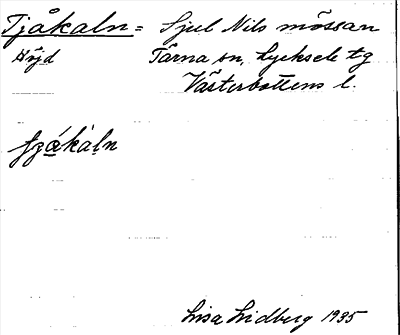 Tjåkaln = Sjul Nils mössan
Höjd Tärna sn, Lycksele tg
Västerbottens l.
Lisa Lidberg 1935